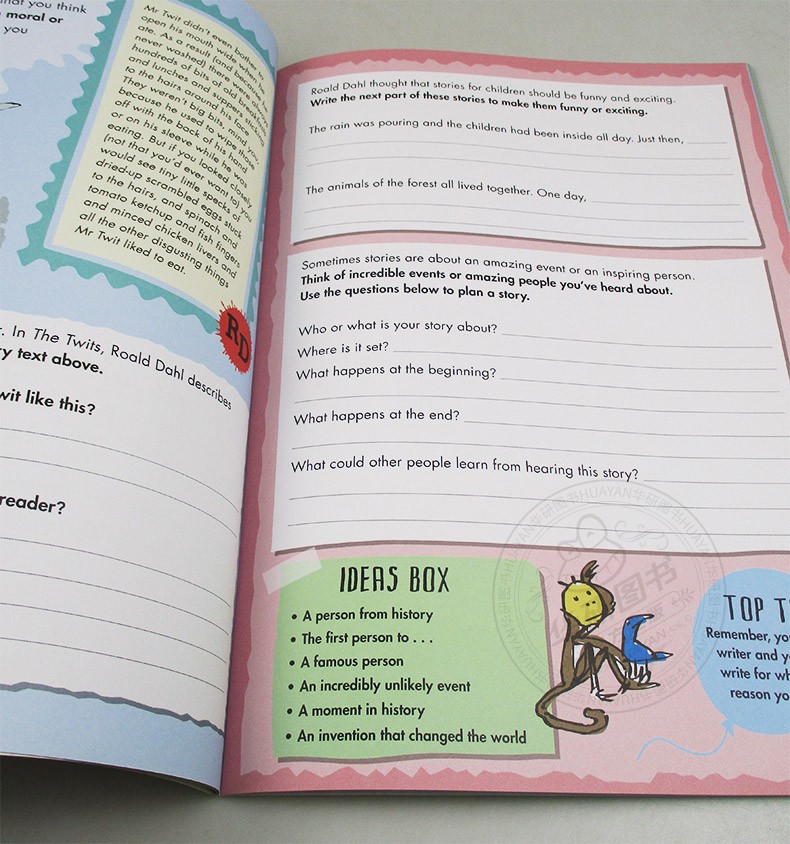 hat you think
moral or
you
Mr Twit didn't even bother to
open his mouth wide when he
ate. As a result (and because he
never washed) there were always
hundreds of bits of old breakfasts
and lunches and suppers sticking
to the hairs around his face.
They weren't big bits, mind you,
because he used to wipe those
off with the back of his hand
or on his sleeve while he was
eating. But if you looked closely
(not that you'd ever want to) you
would see tiny little specks of
dried-up scrambled eggs stuck
to the hairs, and spinach and
tomato ketchup and fish fingers
and minced chicken livers and
all the other disgusting things
Mr Twit liked to eat.
RD
r. In The Twits, Roald Dahl describes
ry text above.
wit like this?
reader?
Roald Dahl thought that stories for children should be funny and exciting.
Write the next part of these stories to make them funny or exciting.
The rain was pouring and the children had been inside all day. Just then,
The animals of the forest all lived together. One day,
Sometimes stories are about an amazing event or an inspiring person.
Think of incredible events or amazing people you've heard about.
Use the questions below to plan a story.
Who or what is your story about?
Where is it set?
What happens at the beginning?
What happens at the end?
What could other people learn from hearing this story?
IDEAS BOX
• A person from history
• The first person to . . .
• A famous person
• An incredibly unlikely event
• A moment in history
• An invention that changed the world
TOP T
Remember, yo
writer and y
write for wh
reason yo